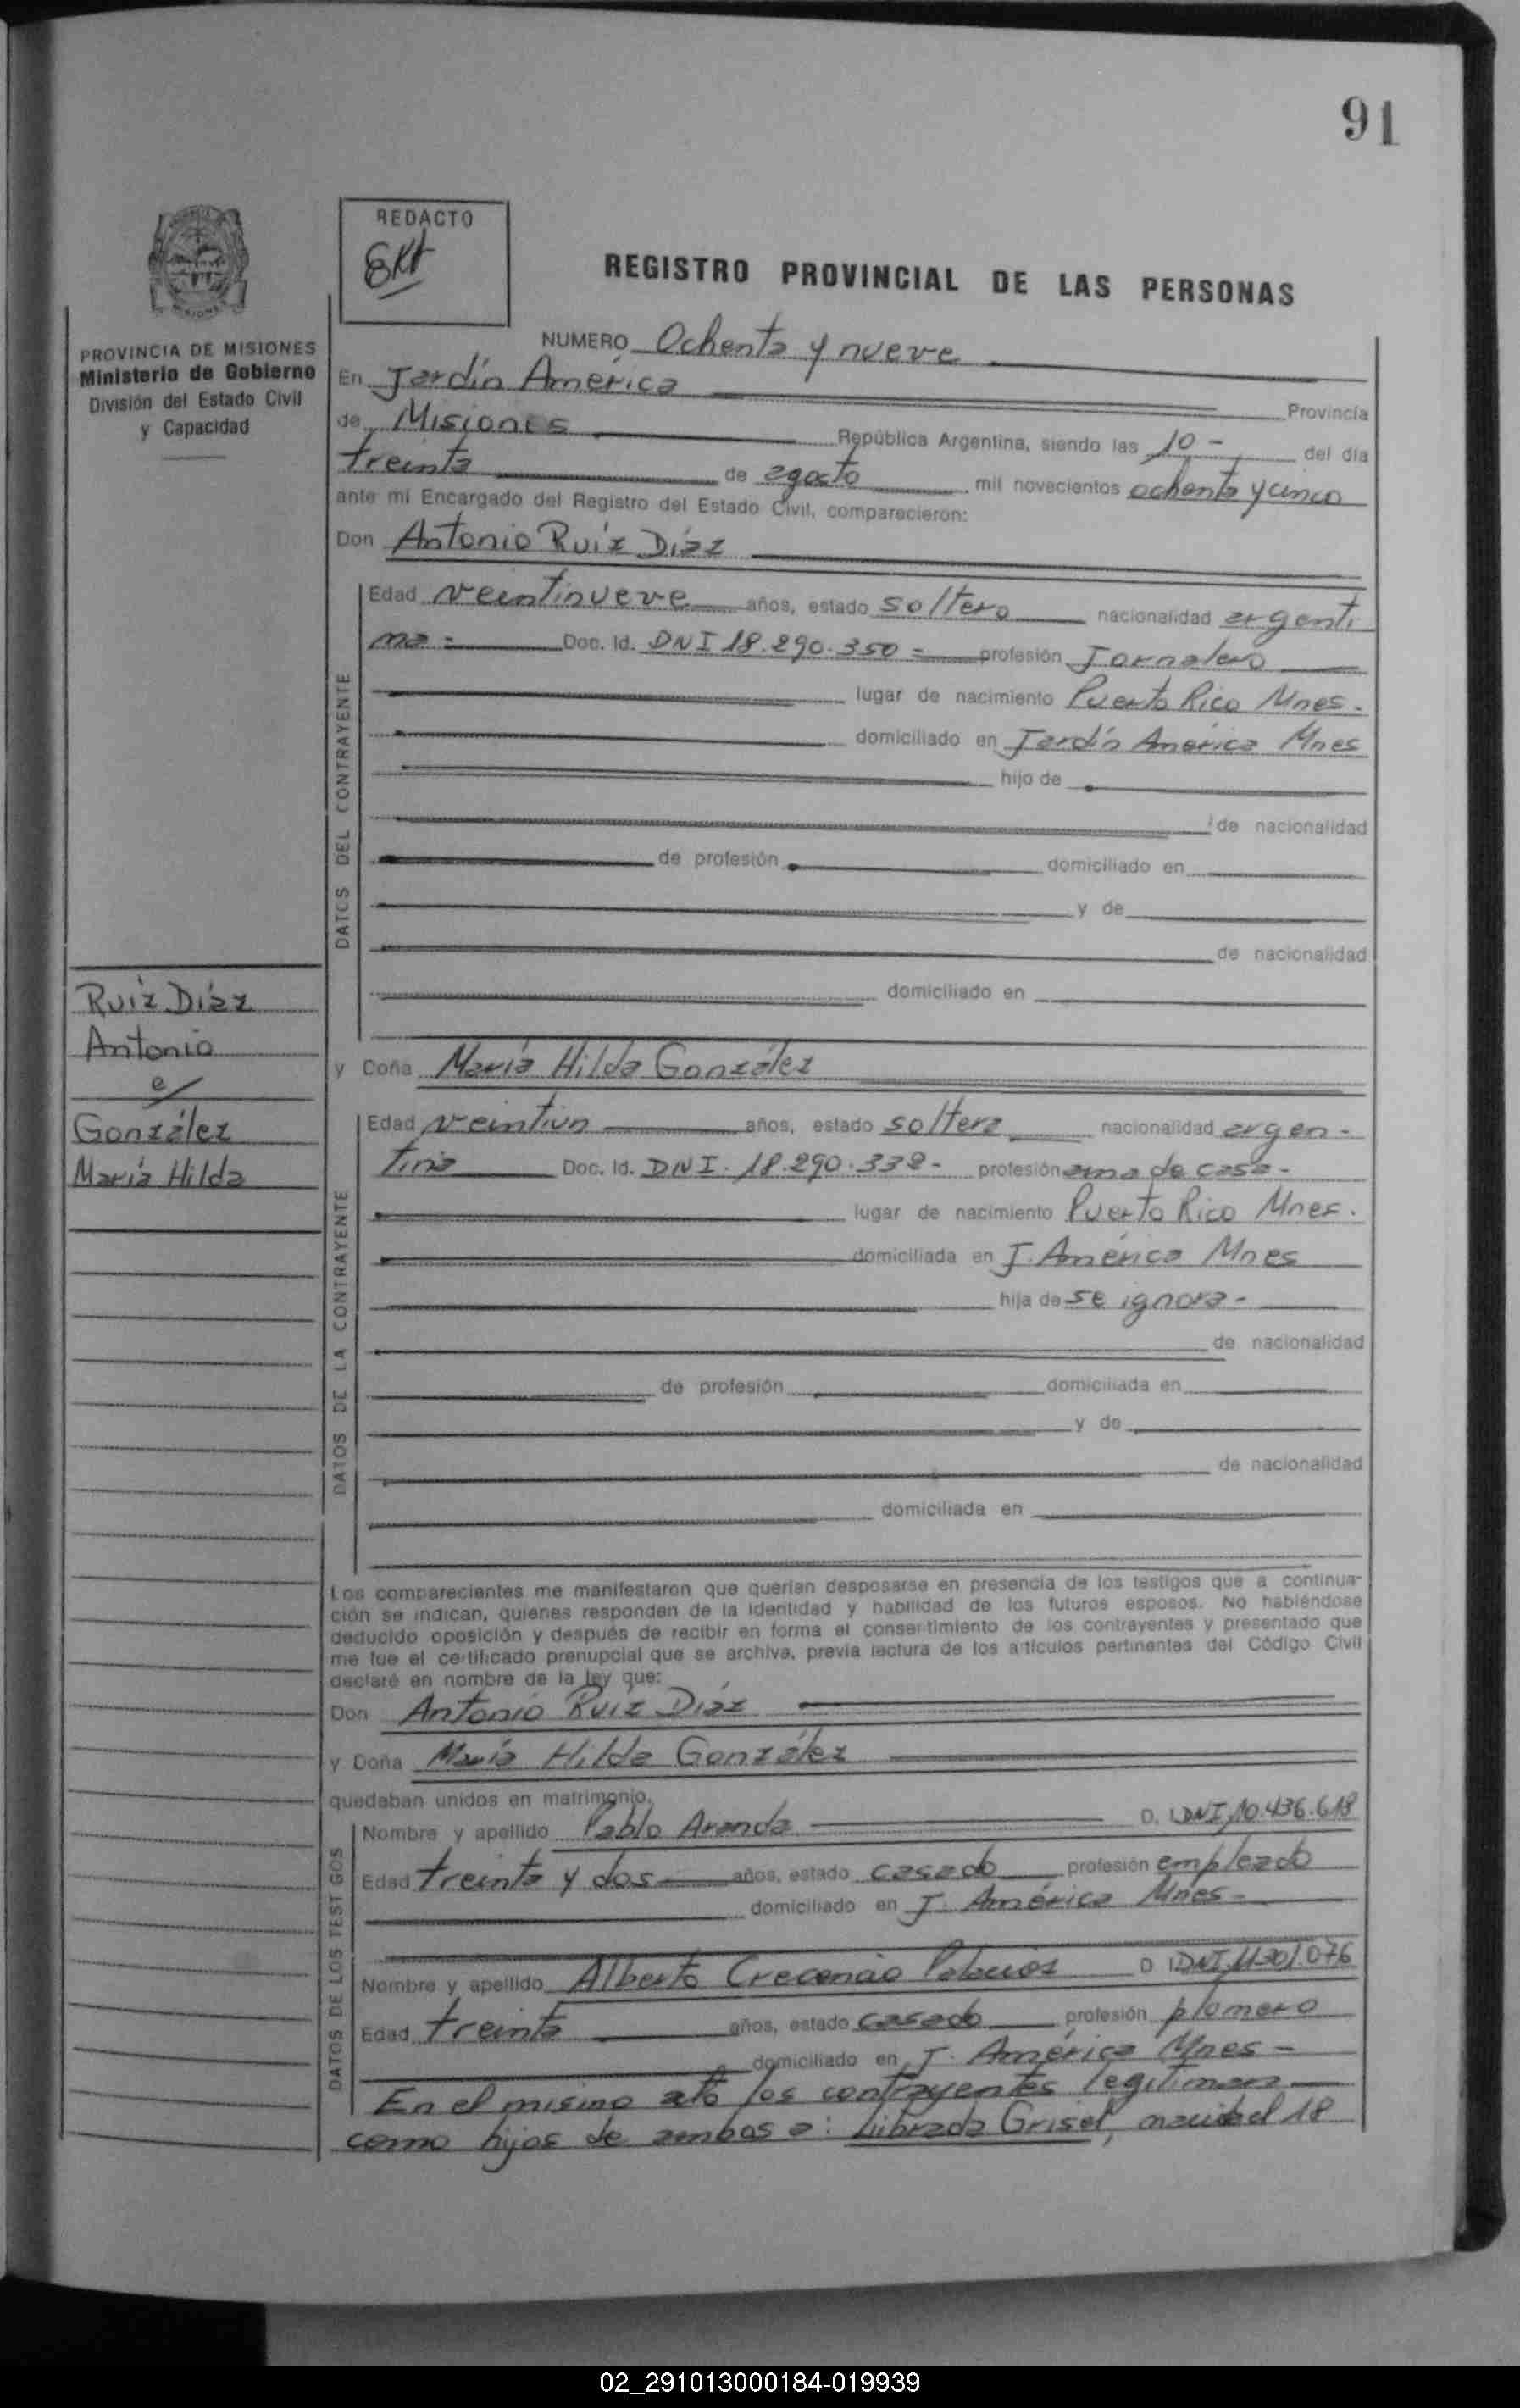 91
REDACTO
REGISTRO PROVINCIAL DE LAS PERSONAS
PROVINCIA DE MISIONES
Ministerio de Gobierno
División del Estado Civil
y Capacidad
NUMERO Ochenta y nueve
En Jardín América Provincia
de Misiones República Argentina, siendo las 10 - del día
treinta de agosto mil novecientos ochenta y cinco
ante mi Encargado del Registro del Estado Civil, comparecieron:
Don Antonio Ruíz Díaz
DATOS DEL CONTRAYENTE
Edad veintinueve años, estado soltero nacionalidad argenti
na = Doc. Id. DNI 18.290.350 = profesión Jornalero
lugar de nacimiento Puerto Rico Mnes.
domiciliado en Jardín América Mnes
hijo de
de nacionalidad
de profesión domiciliado en
y de
de nacionalidad
domiciliado en
Ruíz Díaz
Antonio
e/
González
María Hilda
y Doña María Hilda González
DATOS DE LA CONTRAYENTE
Edad veintiun años, estado soltera nacionalidad argen-
tina Doc. Id. DNI. 18.290.338- profesión ama de casa-
lugar de nacimiento Puerto Rico Mnes.
domiciliada en J. América Mnes
hija de se ignora-
de nacionalidad
de profesión domiciliada en
y de
de nacionalidad
domiciliada en
Los comparecientes me manifestaron que querían desposarse en presencia de los testigos que a continua-
ción se indican, quienes responden de la identidad y habilidad de los futuros esposos. No habiéndose
deducido oposición y después de recibir en forma el consentimiento de los contrayentes y presentado que
me fue el certificado prenupcial que se archiva, previa lectura de los artículos pertinentes del Código Civil
declaré en nombre de la ley que:
Don Antonio Ruiz Díaz
y Doña María Hilda González
quedaban unidos en matrimonio.
DATOS DE LOS TESTIGOS
Nombre y apellido Pablo Aranda D. I. DNI 10.436.618
Edad treinta y dos años, estado casado profesión empleado
domiciliado en J. América Mnes-
Nombre y apellido Alberto Crecencio Palacios D I DNI 11301076
Edad treinta años, estado casado profesión plomero
domiciliado en J. América Mnes-
En el mismo acto los contrayentes legitiman
como hijos de ambos a: Librada Grisel, nacida el 18
02_291013000184-019939